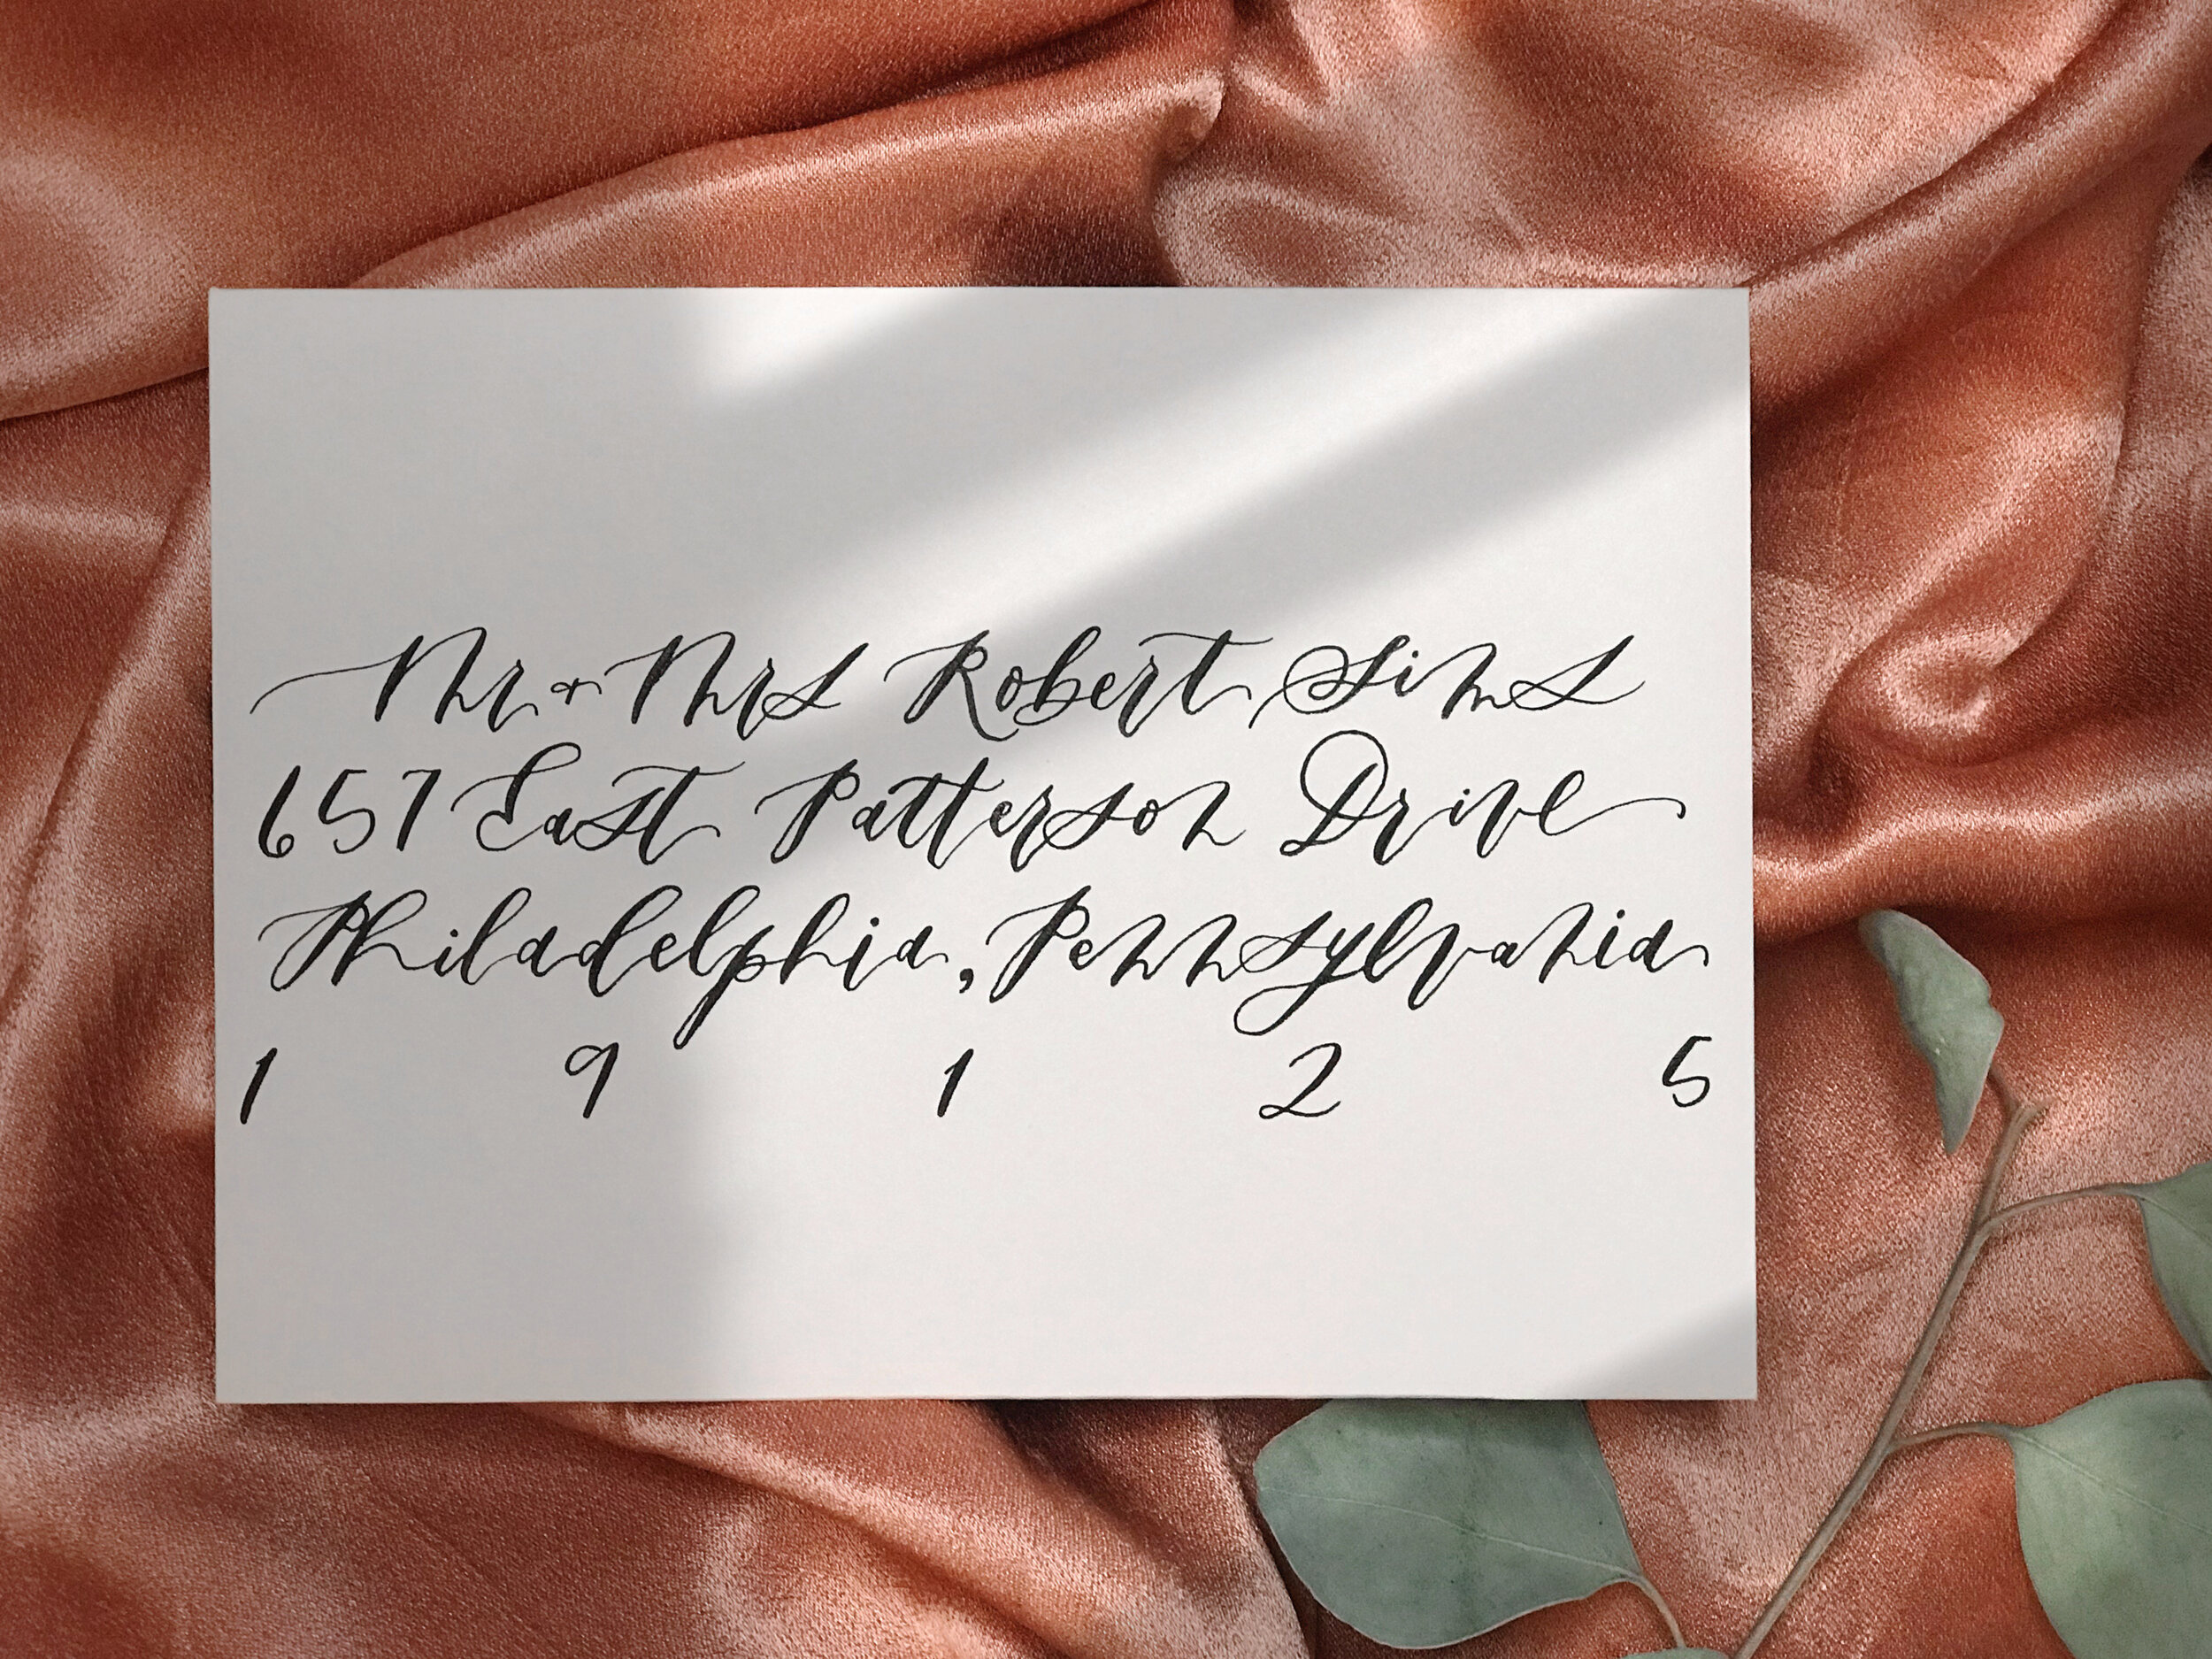 Mr + Mrs Robert Sims
657 East Patterson Drive
Philadelphia, Pennsylvania
1 9 1 2 5